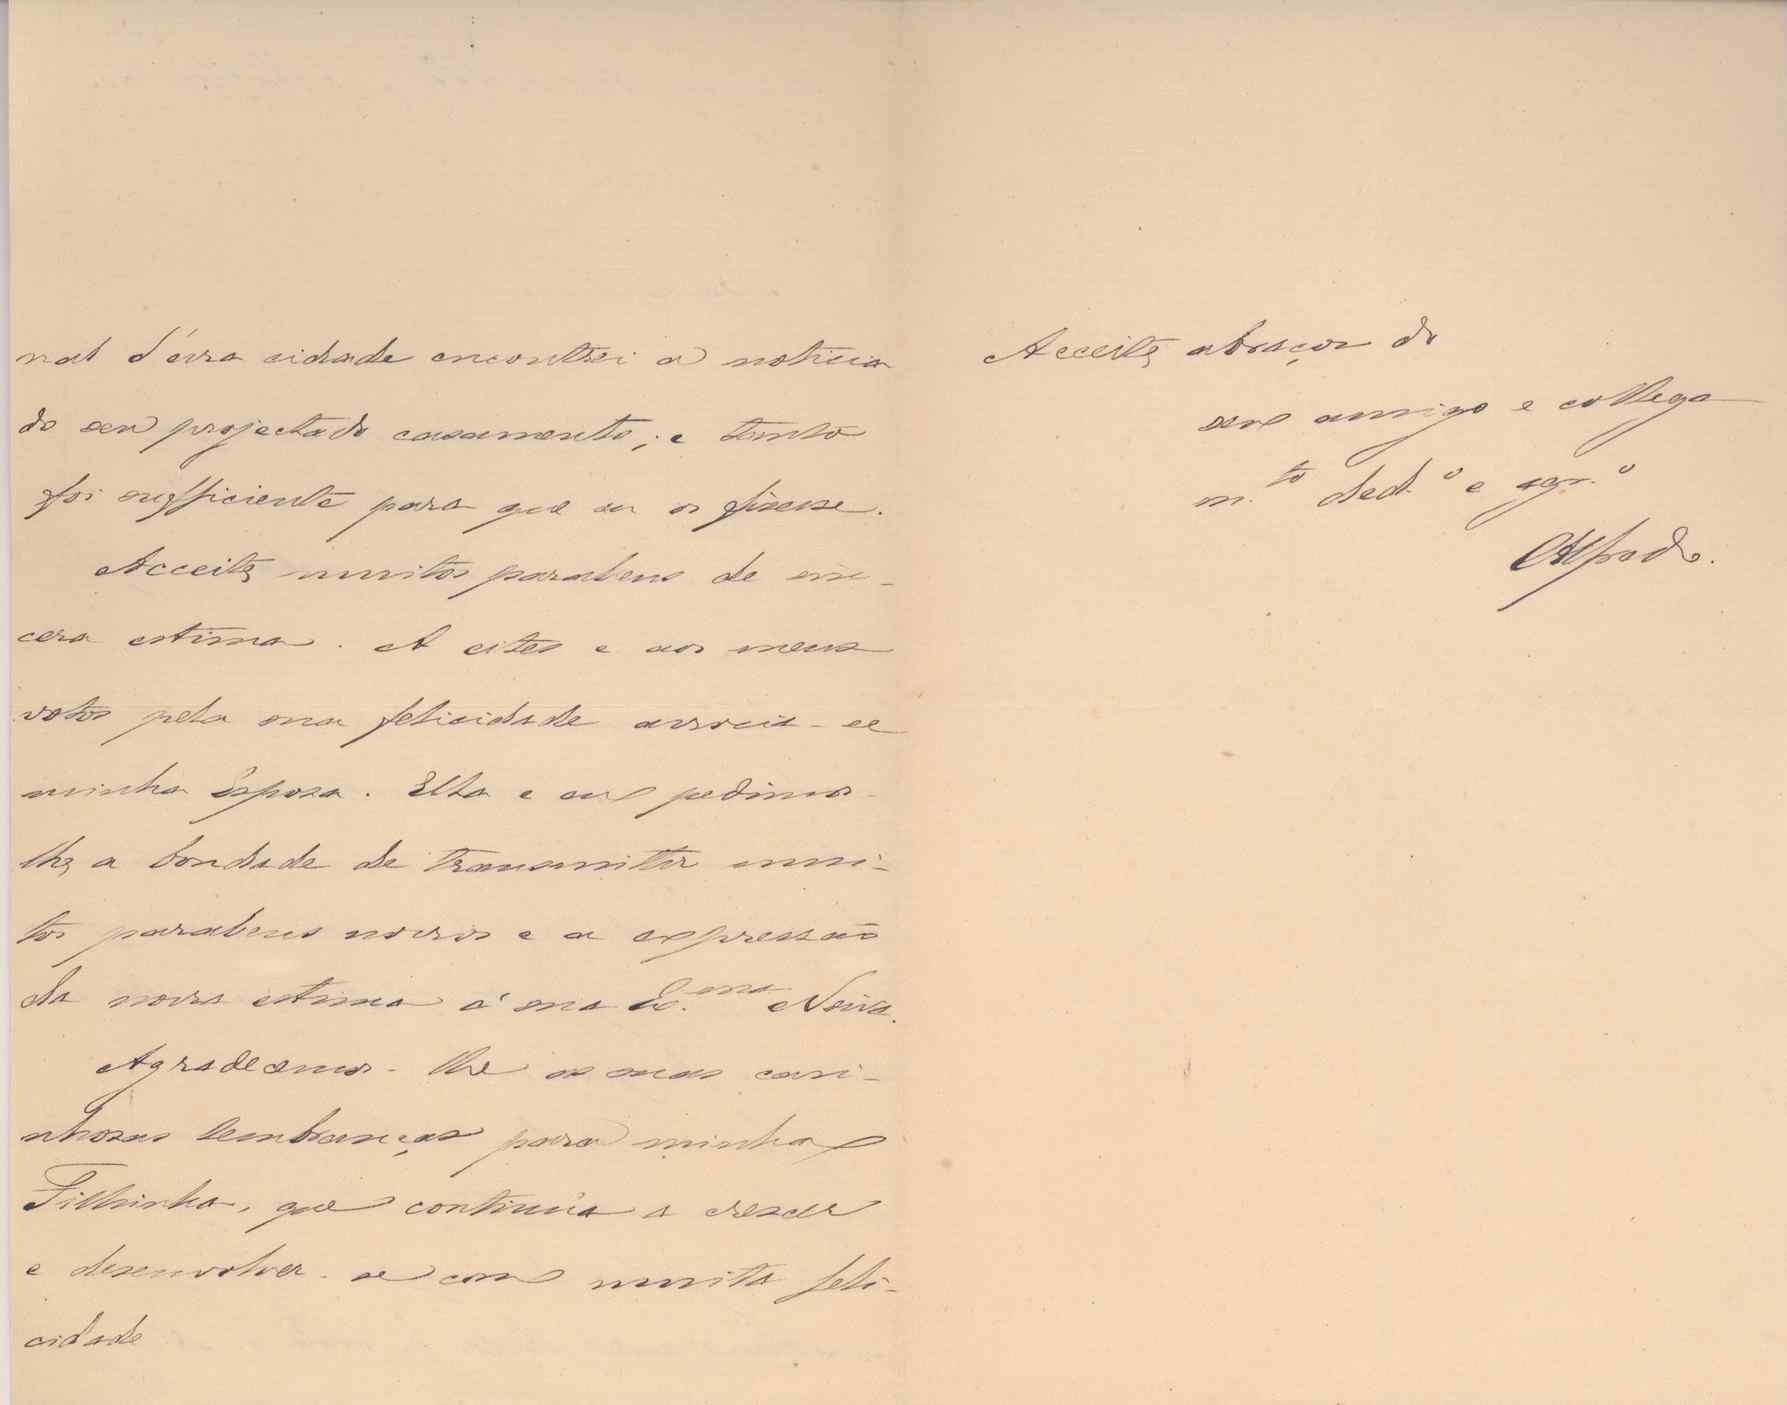 nal d'essa cidade encontrei a noticia
do seu projectado casamento, e tanto
foi sufficiente para que eu os fizesse.
Acceite muitos parabens de sin-
cera estima. A estes e aos meus
votos pela sua felicidade associa-se
minha Esposa. Ella e eu pedimos-
lhe a bondade de transmittir mui-
tos parabens nossos e a expressão
da nossa estima á sua Ex.ma Noiva.
Agradecemos-lhe as suas cari-
nhosas lembranças para minha
Filhinha, que continúa a crescer
e desenvolver-se com muita feli-
cidade
Acceite abraços do
seu amigo e collega
m.to ded.o e agr.o
Alfredo.